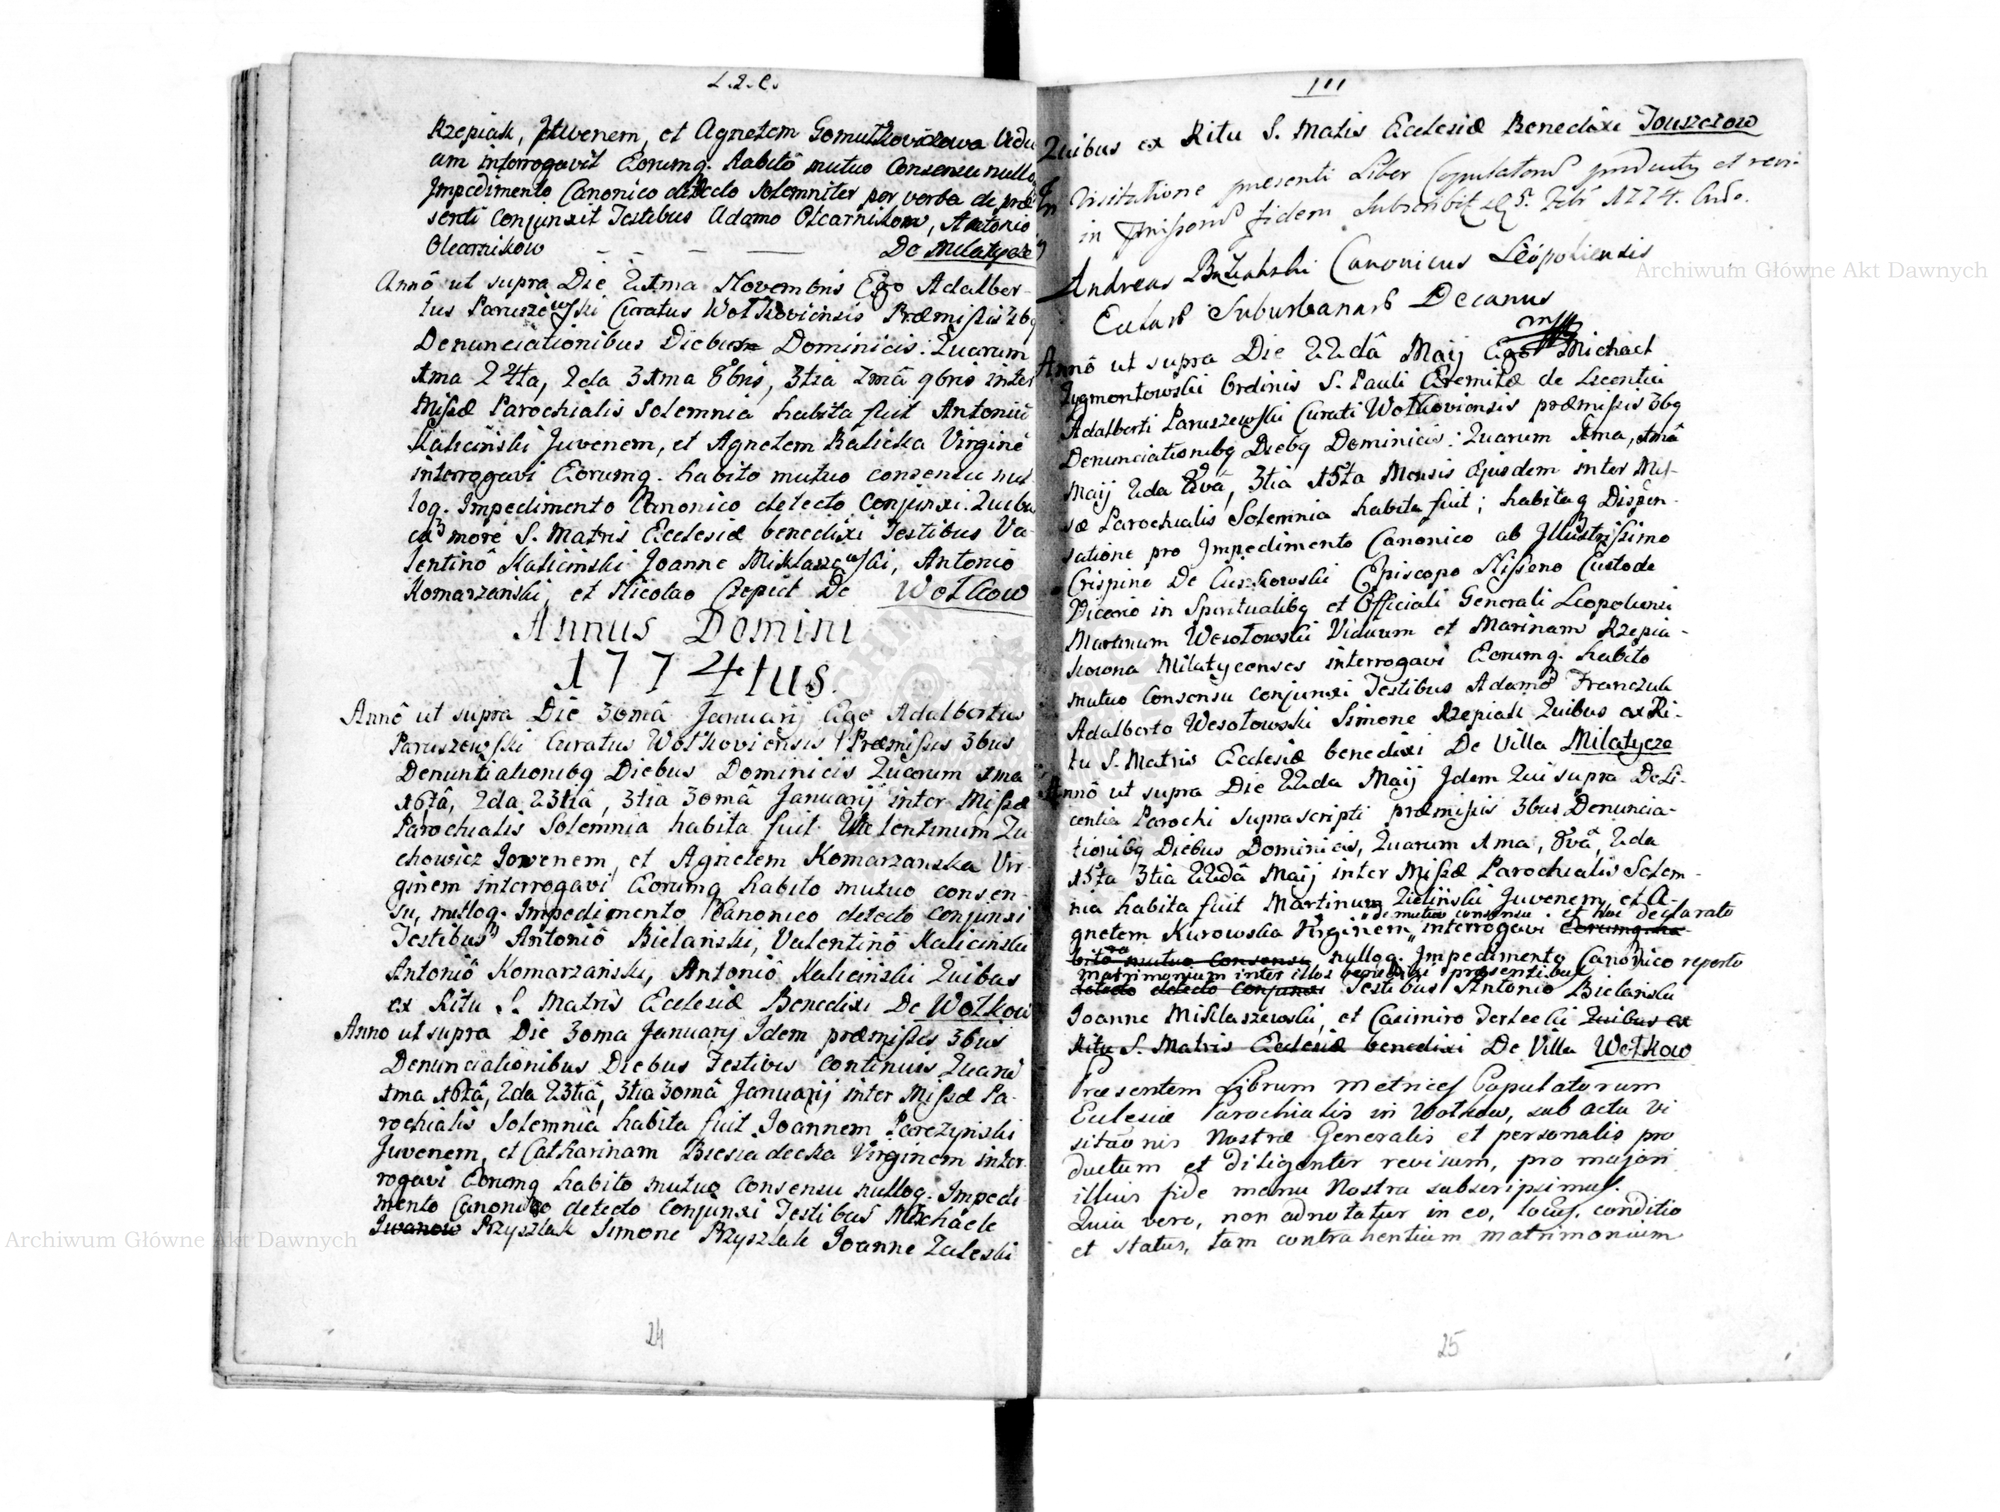 L.2.C.
Rzepiak, Juvenem, et Agnetem Gomułkowiczowa Vidu
am interrogavit Eorumq. habitô mutuo Consensu nullo
Impedimento Canonico detecto Solemniter per verba de præ
senti conjunxit Testibus Adamo Olearnikow, Antonio
Olearnikow De Milatycze
Annô ut supra Die 21ma Novembris Ego Adalber-
tus Paruszewski Curatus Wołkoviensis Præmissis 3bq
Denunciationibus Diebus Dominicis: Quarum
1ma 24ta, 2da 31ma 8bris, 3tia 7mâ 9bris inter
Missæ Parochialis Solemnia habita fuit Antoniũ
Kaliciński Juvenem, et Agnetem Kalicka Virginẽ
interrogavi Eorumq. habito mutuo consensu nul-
loq. Impedimento Canonico detecto Conjunxi. Quibus
ex more S. Matris Ecclesiæ benedixi Testibus Va-
lentinô Kaliciński Joanne Miklaszewski, Antonio
Komarzański, et Nicolao Czepiel De Wołkow
Annus Domini
1774tus.
Annô ut supra Die 30mâ Januarij Ego Adalbertus
Paruszewski Curatus Wołkoviensis Præmissis 3bus
Denuntiationibq Diebus Dominicis Quarum 1ma
16tâ, 2da 23tiâ, 3tia 30mâ Januarij inter Missæ
Parochialis Solemnia habita fuit Valentinum Zu
chowicz Jovenem, et Agnetem Komarzanska Vir-
ginem interrogavi Eorumq habito mutuo consen-
su, nulloq. Impedimento Canonico detecto conjunxi
Testibus Antoniô Bielański, Valentinô Kaliciński
Antoniô Komarzański, Antoniô Kaliciński Quibus
ex Ritu S. Matris Ecclesiæ Benedixi De Wołkow
Anno ut supra Die 30ma Januarij Idem præmissis 3bus
Denunciationibus Diebus Festivis continuis Quarũ
1ma 16tâ, 2da 23tiâ, 3tia 30mâ Januarij inter Missæ Pa-
rochialis Solemnia habita fuit Joannem Parczyński
Juvenem, et Catharinam Biesiadecka Virginem inter-
rogavi Eorumq habito mutuo Consensu nulloq. Impedi-
mento Canonico detecto Conjunxi Testibus Michaele
Iwanow Przyszlak Simone Przyszlak Joanne Zaleski
24
111
Quibus ex Ritu S. Matis Ecclesiæ Benedixi Touszczow
In Visitatione presenti Liber Copulatorũ et revi-
in fidem Subscribit 5. 7br 1774. Ando.
Andreas Canonicus Leopoliensis
Suburbanus Decanus
mpp
Annô ut supra Die 22dâ Maij Ego Michael
Zygmontowski Ordinis S. Pauli Eremitæ de Licentia
Adalberti Paruszewski Curati Wołkoviensis præmissis 3bq
Denunciationibq Diebq Dominicis: Quarum 1ma, 1mâ
Maij 2da 8vâ, 3tia 15ta Mensis Ejusdem inter Mis-
sæ Parochialis Solemnia habita fuit; habitaq Dispen-
satione pro Impedimento Canonico ab Illustrissimo
Crispino De Cieszkowski Episcopo Nisseno Custode
Vicario in Spiritualibq et Officiali Generali Leopoliensi
Martinum Wesołowski Viduum et Marinam Rzepia-
kowna Milatycenses interrogavi Eorumq. habito
mutuo Consensu conjunxi Testibus Adamo Franczuk
Adalberto Wesołowski Simone Rzepiak Quibus ex Ri-
tu S. Matris Ecclesiæ benedixi De Villa Milatycze
Annô ut supra Die 22da Maij Idem Qui supra De Li-
centia Parochi suprascripti præmissis 3bus Denuncia-
tionibq Diebus Dominicis, Quarum 1ma, 8vâ, 2da
15ta 3tia 22dâ Maij inter Missæ Parochialis Solem-
nia habita fuit Martinum Zieliński Juvenem, et A-
de mutuo consensu. et hoc declarato
gnetem Kurowska Virginem, interrogavi Eorumq. ha-
bito mutuo Consensu nulloq. Impedimento Canonico reperto
matrimonium inter illos benedixi præsentibus
detecto detecto Conjunxi Testibus Antonio Bielański
Joanne Miklaszewski, et Casimiro Terlecki Quibus ex
Ritu S. Matris Ecclesiæ benedixi De Villa Wołkow
Præsentem Librum metrices Copulatorum
Eclesiæ Parochialis in Wołkow, sub actu vi
sitaõnis Nostræ Generalis et personalis pro
ductum et diligenter revisum, pro majori
illius fide manu Nostra subscripsimus.
Quia vero, non adnotatur in eo, locus, conditio
et status, tam contrahentium matrimonium
25
Archiwum Główne Akt Dawnych
Archiwum Główne Akt Dawnych